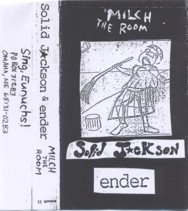 Solid Jackson & ender
MILCH
THE
ROOM
Sing, Eunuchs!
PO BOX 31283
OMAHA, NE 68131-0283
MILCH
THE ROOM
Solid J*cKSON
ender